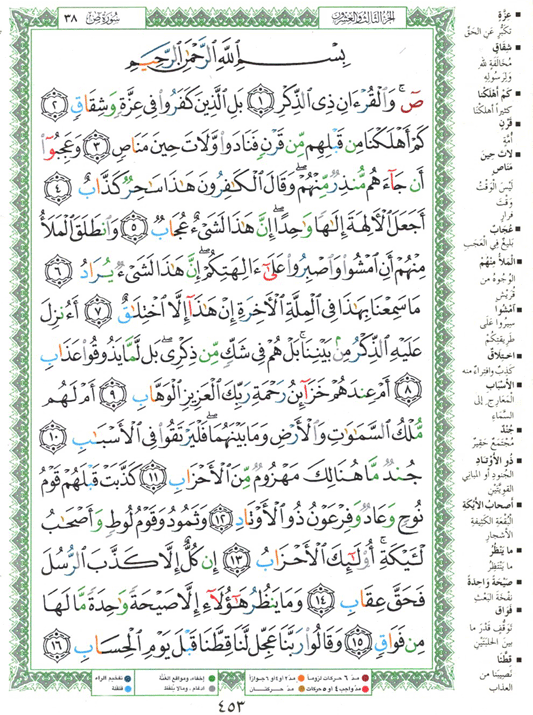 الجزء الثالث والعشرون
سورة ص ٣٨
بِسْمِ ٱللَّهِ ٱلرَّحْمَٰنِ ٱلرَّحِيمِ
صٓ ۚ وَٱلْقُرْءَانِ ذِى ٱلذِّكْرِ ١ بَلِ ٱلَّذِينَ كَفَرُوا۟ فِى عِزَّةٍ وَشِقَاقٍ ٢
كَمْ أَهْلَكْنَا مِن قَبْلِهِم مِّن قَرْنٍ فَنَادَوا۟ وَّلَاتَ حِينَ مَنَاصٍ ٣ وَعَجِبُوٓا۟
أَن جَآءَهُم مُّنذِرٌ مِّنْهُمْ ۖ وَقَالَ ٱلْكَٰفِرُونَ هَٰذَا سَٰحِرٌ كَذَّابٌ ٤
أَجَعَلَ ٱلْءَالِهَةَ إِلَٰهًا وَٰحِدًا ۖ إِنَّ هَٰذَا لَشَىْءٌ عُجَابٌ ٥ وَٱنطَلَقَ ٱلْمَلَأُ
مِنْهُمْ أَنِ ٱمْشُوا۟ وَٱصْبِرُوا۟ عَلَىٰٓ ءَالِهَتِكُمْ ۖ إِنَّ هَٰذَا لَشَىْءٌ يُرَادُ ٦
مَا سَمِعْنَا بِهَٰذَا فِى ٱلْمِلَّةِ ٱلْءَاخِرَةِ إِنْ هَٰذَآ إِلَّا ٱخْتِلَٰقٌ ٧ أَءُنزِلَ
عَلَيْهِ ٱلذِّكْرُ مِنۢ بَيْنِنَا ۚ بَلْ هُمْ فِى شَكٍّ مِّن ذِكْرِى ۖ بَل لَّمَّا يَذُوقُوا۟ عَذَابِ
٨ أَمْ عِندَهُمْ خَزَآئِنُ رَحْمَةِ رَبِّكَ ٱلْعَزِيزِ ٱلْوَهَّابِ ٩ أَمْ لَهُم
مُّلْكُ ٱلسَّمَٰوَٰتِ وَٱلْأَرْضِ وَمَا بَيْنَهُمَا ۖ فَلْيَرْتَقُوا۟ فِى ٱلْأَسْبَٰبِ ١٠
جُندٌ مَّا هُنَالِكَ مَهْزُومٌ مِّنَ ٱلْأَحْزَابِ ١١ كَذَّبَتْ قَبْلَهُمْ قَوْمُ
نُوحٍ وَعَادٌ وَفِرْعَوْنُ ذُو ٱلْأَوْتَادِ ١٢ وَثَمُودُ وَقَوْمُ لُوطٍ وَأَصْحَٰبُ
لْـَٔيْكَةِ ۚ أُو۟لَٰٓئِكَ ٱلْأَحْزَابُ ١٣ إِن كُلٌّ إِلَّا كَذَّبَ ٱلرُّسُلَ
فَحَقَّ عِقَابِ ١٤ وَمَا يَنظُرُ هَٰٓؤُلَآءِ إِلَّا صَيْحَةً وَٰحِدَةً مَّا لَهَا
مِن فَوَاقٍ ١٥ وَقَالُوا۟ رَبَّنَا عَجِّل لَّنَا قِطَّنَا قَبْلَ يَوْمِ ٱلْحِسَابِ ١٦
عِزَّةٍ
تكبّر عن الحقّ
شِقاقٍ
مخالفة لله
ولرسوله
كَمْ أهلكنا
كثيراً أهلكنا
قَرْنٍ
أمّة
لاتَ حينَ
مَناصٍ
ليس الوقت
وقت
فرار
عُجابٌ
بليغ في العجب
الملأ منهم
الوجوه من
قريش
امشوا
سيروا على
طريقتكم
اختلاق
كذبٌ وافتراءٌ منه
الأسباب
المعارج إلى
السّماء
جُندٌ
مجتمع حقير
ذو الأوتاد
الجنود أو المباني
القويّة
أصحاب الأيكة
البقعة الكثيفة
الأشجار
ما ينظر
ما ينتظر
صيحة واحدة
نفخة البعث
فَواق
توقّف قدر ما
بين الحلبتين
قِطَّنا
نصيبنا من
العذاب
مدّ ٦ حركات لزوماً
مدّ ٢ أو ٤ أو ٦ جوازاً
إخفاء، ومواقع الغنّة
تفخيم الراء
مدّ واجب ٤ أو ٥ حركات
مدّ حركتان
ادغام، ومالا يلفظ
قلقلة
٤٥٣